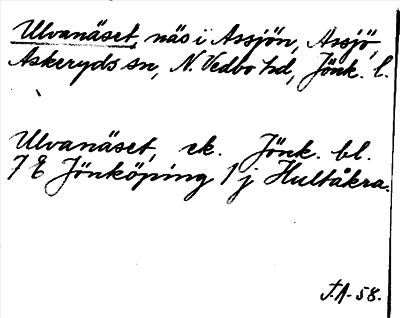 Ulvanäset, näs i Assjön, Assjö,
Askeryds sn, N. Vedbo hd, Jönk. l.
Ulvanäset, ek. Jönk. bl.
7 E Jönköping 1 j Hultåkra.
J.A-58.